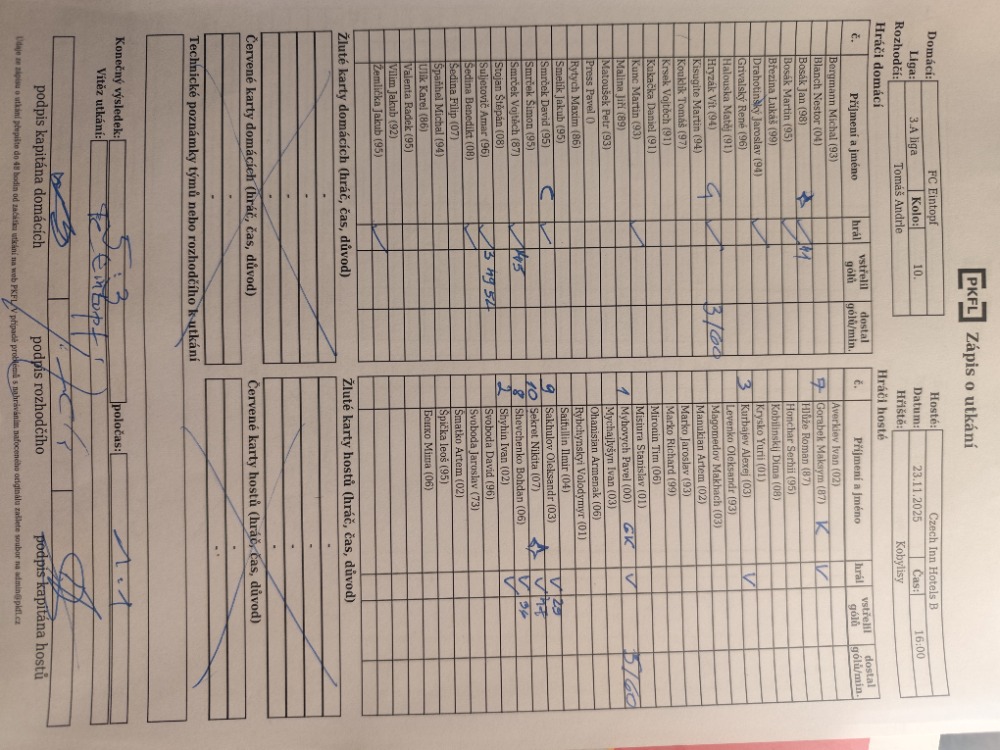 PKFL Zápis o utkání
Domácí: FC Eintopf
Liga: 3.A liga Kolo: 10.
Rozhodčí: Tomáš Andrle
Hosté: Czech Inn Hotels B
Datum: 23.11.2025 Čas: 16:00
Hřiště: Kobylisy
Hráči domácí
č. Příjmení a jméno hrál vstřelil gólů dostal gólů/min.
Bergmann Michal (93)
Blanch Nestor (04)
Bosák Jan (98)
Bosák Martin (95) 11
Březina Lukáš (99)
Drahotínský Jaroslav (94)
Grivalský René (96)
Halouska Matěj (91)
Hryzák Vít (94) G 3/60
Kissugite Martin (94)
Koublik Tomáš (97)
Krsek Vojtěch (91)
Kukačka Daniel (91)
Kunc Martin (93)
Malina Jiří (89)
Matoušek Petr (93)
Pross Pavel ()
Rytych Maxim (86)
Smetik Jakub (95)
Smrček David (95) C
Smrček Šimon (95)
Smrček Vojtěch (87) 45
Stojan Štěpán (08)
Suljatovič Amar (96) 3 49 52
Šedina Benedikt (08)
Šedina Filip (07)
Španhel Michal (94)
Ulík Karel (86)
Valenta Radek (95)
Vilím Jakub (92)
Žemlička Jakub (95)
Žluté karty domácích (hráč, čas, důvod)
Červené karty domácích (hráč, čas, důvod)
Technické poznámky týmů nebo rozhodčího k utkání
Hráči hosté
č. Příjmení a jméno hrál vstřelil gólů dostal gólů/min.
Averkiev Ivan (02)
7 Gorabek Maksym (87) K V
Hlůže Roman (87)
Honchar Serhii (95)
Kobilinskij Dima (08)
Krysko Yurii (01)
3 Kurbajev Alexej (03) V
Levenko Oleksandr (93)
Magomedov Makhach (03)
Manukian Artem (02)
Marko Jaroslav (93)
Marko Richard (99)
Mironun Tim (06)
Misiura Stanislav (01)
1 Myhovych Pavel (00) GK V 5/60
Mychajlyšyn Ivan (03)
Ohanisian Armenak (06)
Rybchynskyi Volodymyr (01)
Saifullin Ilnir (04)
9 Sakhulov Oleksandr (03) V 29
10 Sekret Nikita (07) V
8 Shevchenko Bohdan (06) V
2 Shylun Ivan (02) V
Svoboda David (96)
Svoboda Jaroslav (73)
Šmatko Artem (02)
Špička leoš (95)
Бойко Миша (06)
Žluté karty hostů (hráč, čas, důvod)
Červené karty hostů (hráč, čas, důvod)
Konečný výsledek: 5:3 poločas: 1:1
Vítěz utkání: FC Eintopf
podpis kapitána domácích podpis rozhodčího podpis kapitána hostů
Údaje ze zápisu o utkání přepište do 48 hodin od začátku utkání na web PKFL. V případě problémů s nahráváním nafoceného originálu zašlete soubor na admin@pkfl.cz